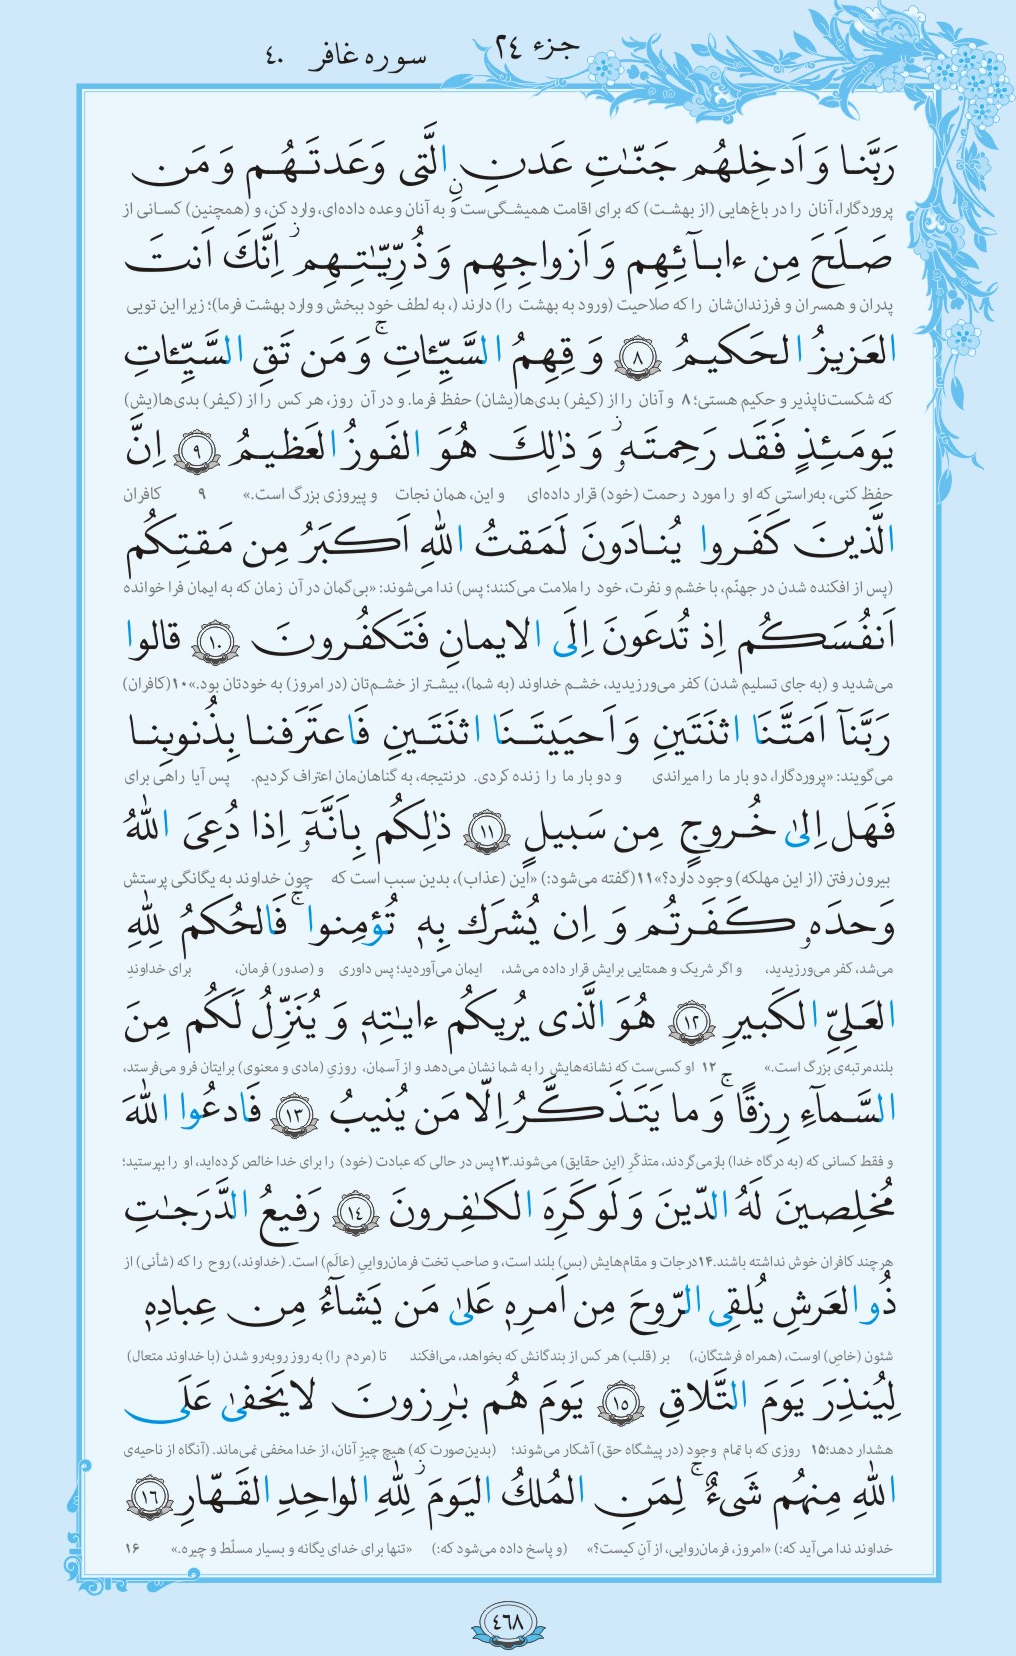 جزء ٢٤
سوره غافر ٤٠
رَبَّنا وَ اَدخِلهُم جَنّٰتِ عَدنٍ ۨالَّتی وَعَدتَـهُم وَ مَن
پروردگارا، آنان را در باغ‌هایی (از بهشت) که برای اقامت همیشگی‌ست و به آنان وعده داده‌ای، وارد کن، و (همچنین) کسانی از
صَلَحَ مِن ءابـآئِهِم وَ اَزواجِهِم وَ ذُرِّیّٰتِـهِم ز اِنَّكَ اَنتَ
پدران و همسران و فرزندان‌شان را که صلاحیت (ورود به بهشت را) دارند (، به لطف خود ببخش و وارد بهشت فرما)؛ زیرا این تویی
العَزیزُ الحَکیمُ ٨ وَ قِهِمُ السَّیِّئاتِ ج وَ مَن تَقِ السَّیِّئاتِ
که شکست‌ناپذیر و حکیم هستی؛ ۸ و آنان را از (کیفر) بدی‌ها(یشان) حفظ فرما. و در آن روز، هر کس را از (کیفر) بدی‌ها(یش)
یَومَـئِذٍ فَقَد رَحِمتَـهٗ ز وَ ذٰلِكَ هُوَ الفَوزُ العَظیمُ ٩ اِنَّ
حفظ کنی، به‌راستی که او را مورد رحمت (خود) قرار داده‌ای و این، همان نجات و پیروزی بزرگ است.» ۹ کافران
الَّذینَ کَفَروا یُنـادَونَ لَمَقتُ اللهِ اَکـبَرُ مِن مَقتِکُم
(پس از افکنده شدن در جهنّم، با خشم و نفرت، خود را ملامت می‌کنند؛ پس) ندا می‌شوند: «بی‌گمان در آن زمان که به ایمان فرا خوانده
اَنفُسَکُـم اِذ تُدعَونَ اِلَی الایمانِ فَتَکفُرونَ ١٠ قالوا
می‌شدید و (به جای تسلیم شدن) کفر می‌ورزیدید، خشم خداوند (به شما)، بیشتر از خشم‌تان (در امروز) به خودتان بود.»۱۰(کافران)
رَبَّنآ اَمَتَّنَا اثنَتَینِ وَ اَحیَیتَـنَا اثنَتَـینِ فَاعتَرَفنا بِذُنوبِنا
می‌گویند: «پروردگارا، دو بار ما را میراندی و دو بار ما را زنده کردی. درنتیجه، به گناهان‌مان اعتراف کردیم. پس آیا راهی برای
فَهَل اِلیٰ خُروجٍ مِن سَبیلٍ ١١ ذٰلِکُم بِاَنَّهٗٓ اِذا دُعِیَ اللهُ
بیرون‌رفتن (از این مهلکه) وجود دارد؟»۱۱(گفته می‌شود:) «این (عذاب)، بدین سبب است که چون خداوند به یگانگی پرستش
وَحدَهٗ کَـفَـرتُم وَ اِن یُشرَك بِهٖ تُؤمِنوا ج فَالحُکمُ لِلّٰهِ
می‌شد، کفر می‌ورزیدید، و اگر شریک و همتایی برایش قرار داده می‌شد، ایمان می‌آوردید؛ پس داوری و (صدور) فرمان، برای خداوندِ
العَـلِیِّ الکَبیرِ ١٢ هُوَ الَّذی یُریکُم ءایـاتِهٖ وَ یُنَزِّلُ لَکُم مِنَ
بلندمرتبه‌ی بزرگ است.» ۱۲ او کسی‌ست که نشانه‌هایش را به شما نشان می‌دهد و از آسمان، روزیِ (مادی و معنوی) برایتان فرو می‌فرستد،
السَّمآءِ رِزقًا ج وَ ما یَتَـذَکَّـرُ اِلّا مَن یُنیبُ ١٣ فَادعُوا اللهَ
و فقط کسانی که (به درگاه خدا) بازمی‌گردند، متذکّرِ (این حقایق) می‌شوند.۱۳پس در حالی که عبادت (خود) را برای خدا خالص کرده‌اید، او را بپرستید؛
مُخلِصینَ لَهُ الدّینَ وَ لَو کَرِهَ الکٰفِرونَ ١٤ رَفیعُ الدَّرَجٰتِ
هرچند کافران خوش نداشته باشند.۱۴درجات و مقام‌هایش (بس) بلند است، و صاحب تخت فرمان‌رواییِ (عالَم) است. (خداوند،) روح را که (شأنی) از
ذُو العَرشِ یُلقِی الرّوحَ مِن اَمرِهٖ عَلیٰ مَن یَشآءُ مِن عِبادِهٖ
شئون (خاصِ) اوست، (همراه فرشتگان،) بر (قلب) هر کس از بندگانش که بخواهد، می‌افکند تا (مردم را) به روز روبه‌رو شدن (با خداوند متعال)
لِیُنذِرَ یَومَ التَّلاقِ ١٥ یَومَ هُم بٰرِزونَ لا یَخفیٰ عَلَی
هشدار دهد؛۱۵ روزی که با تمام وجود (در پیشگاه حق) آشکار می‌شوند؛ (بدین‌صورت که) هیچ چیزِ آنان، از خدا مخفی نمی‌ماند. (آنگاه از ناحیه‌ی
اللهِ مِنهُم شَیءٌ ج لِمَنِ المُلكُ الیَومَ ز لِلّٰهِ الواحِدِ القَـهّارِ ١٦
خداوند ندا می‌آید که:) «امروز، فرمان‌روایی، از آنِ کیست؟» (و پاسخ داده می‌شود که:) «تنها برای خدای یگانه و بسیار مسلّط و چیره.» ۱۶
٤٦٨